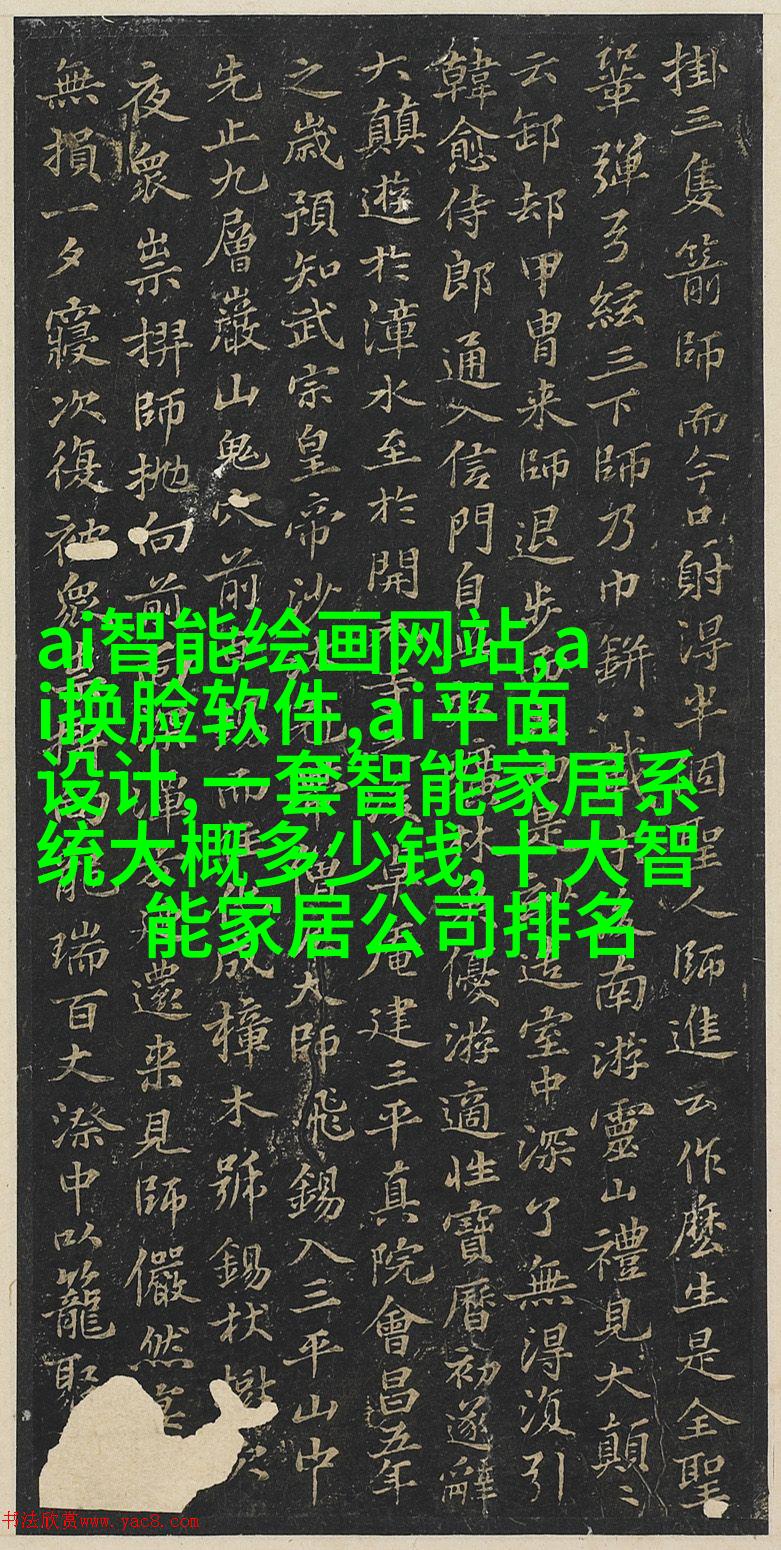 掛三隻箭師而今只射得半固聖人師進云作麼生是全聖
鞏彈弓絃三下師乃巾 南游靈山禮見大顛〻
云卸却甲胄来師退步 是 造室中深了無得湏引
韓愈侍郎通入信門自 優游適性寶曆初遂辭
大顛遊於漳水至於開 建三平真院會昌五年
之歳預知武宗皇帝沙 大師飛錫入三平山中
先止九層巖山鬼穴前 而 成橦木號錫杖 穴
夜衆祟摒師抛向前 還来見師儼然
無損一夕寢次復被衆 瑞百丈漈中以籠聚
ai智能绘画网站,a
i换脸软件,ai平面
设计,一套智能家居系
统大概多少钱,十大智
能家居公司排名
书法欣赏www.yac8.com